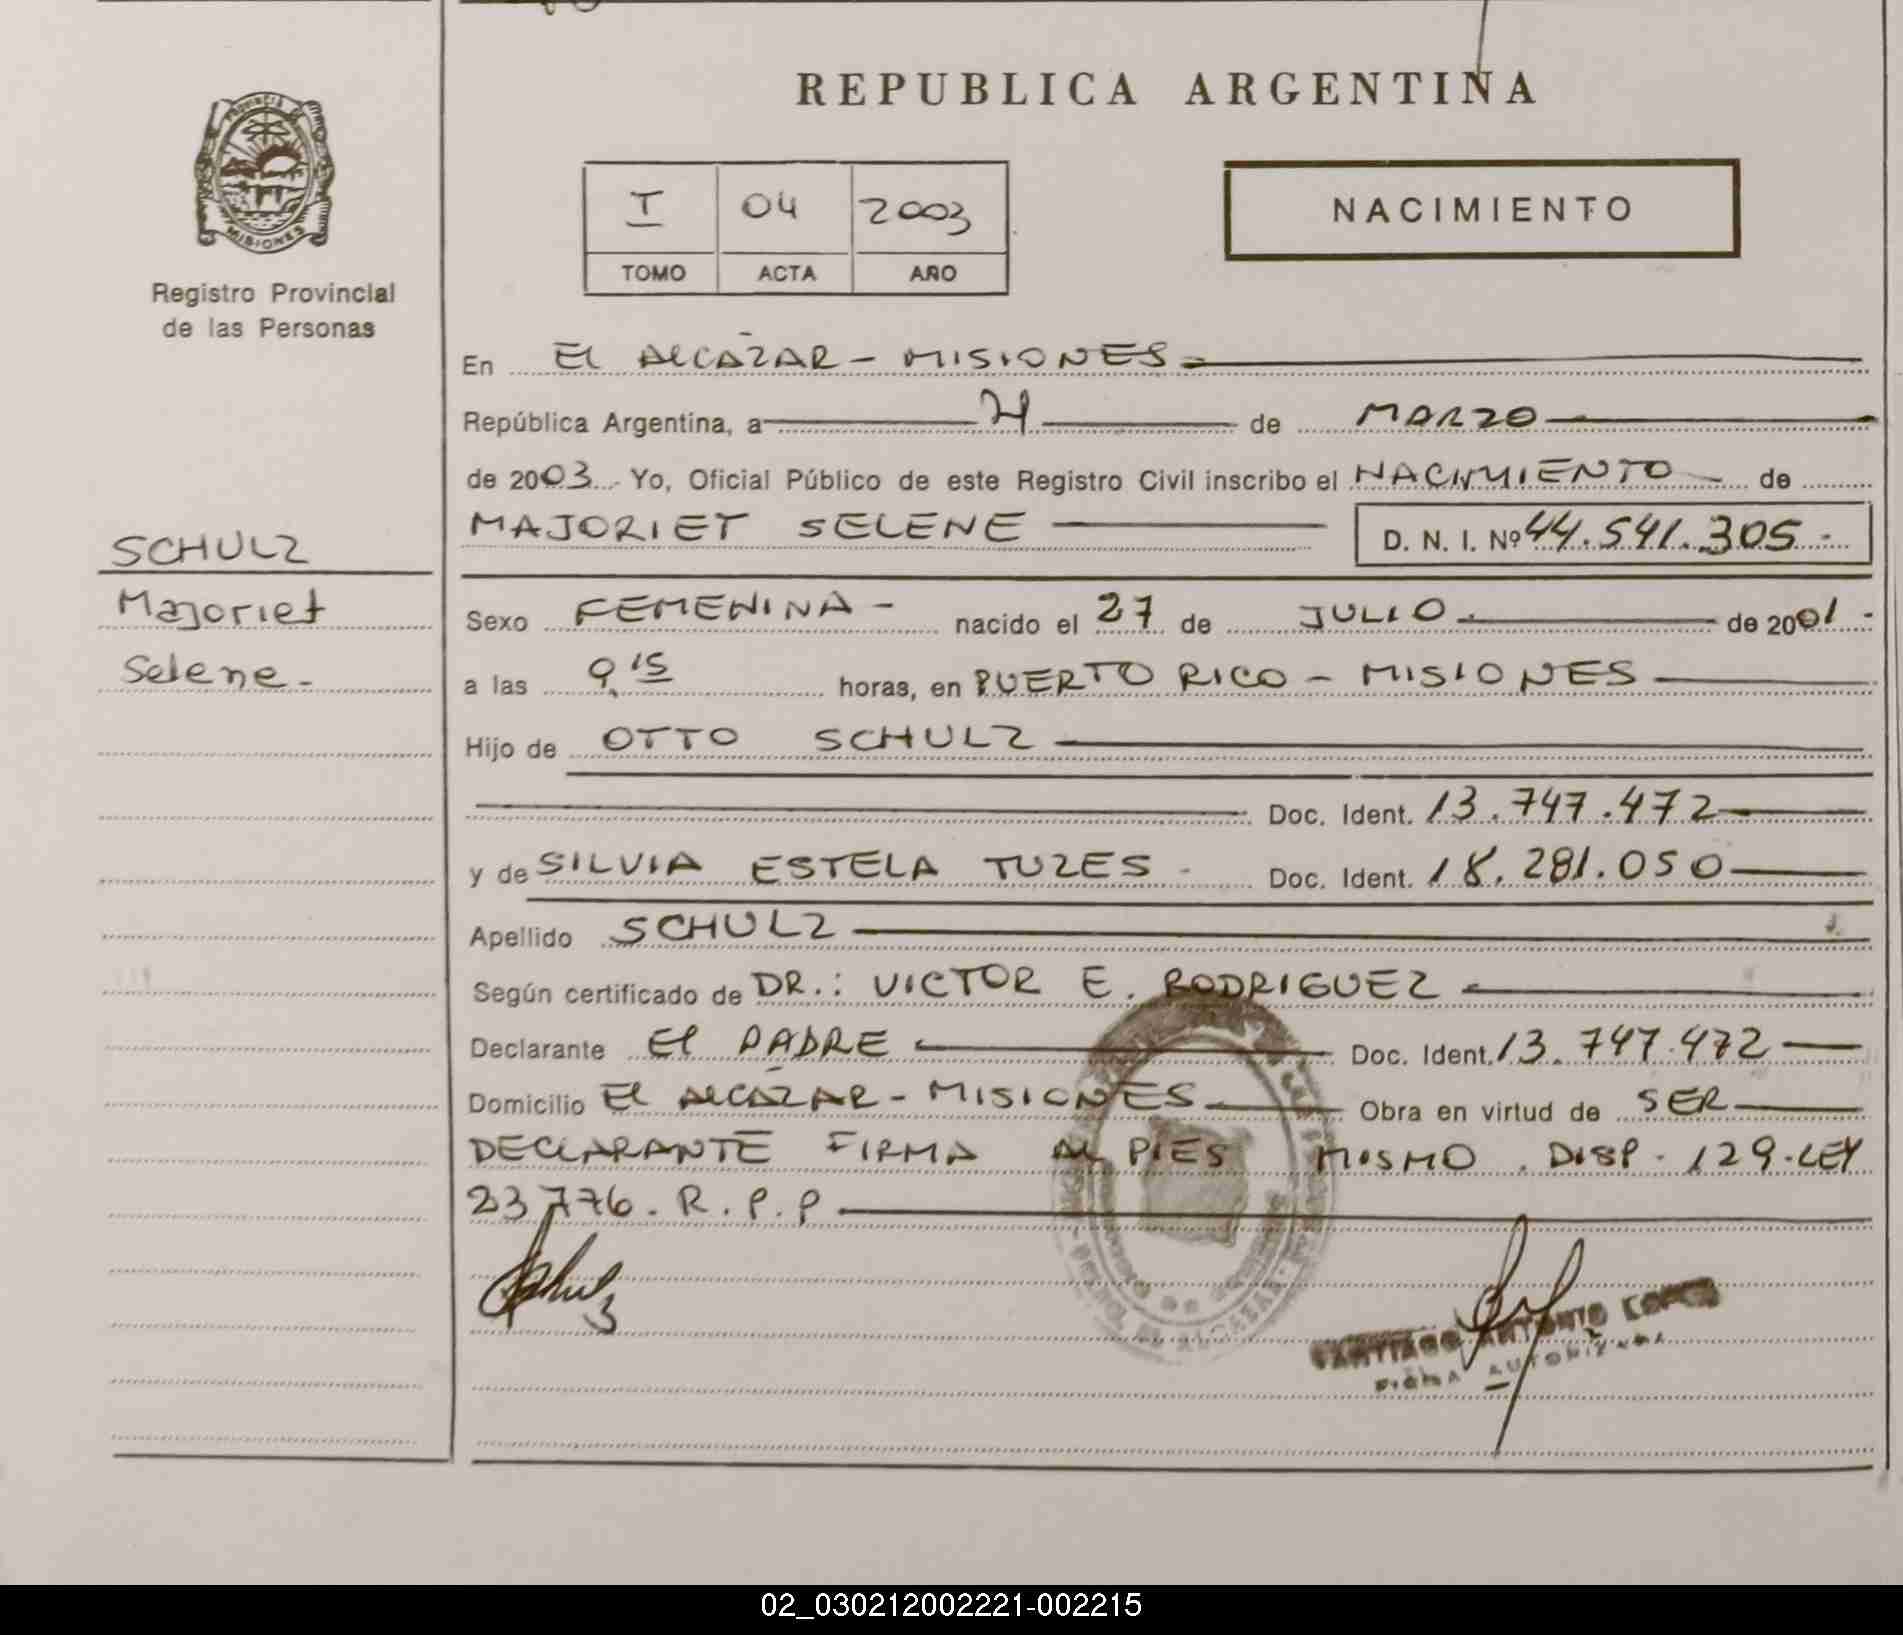 REPUBLICA ARGENTINA
PROVINCIA DE MISIONES
Registro Provincial
de las Personas
I 04 2003
TOMO ACTA AÑO
NACIMIENTO
En EL ALCAZAR - MISIONES
República Argentina, a de MARZO
de 2003 Yo, Oficial Público de este Registro Civil inscribo el NACIMIENTO de
MAJORIET SELENE D. N. I. Nº 44.541.305.-
SCHULZ
Majoriet
Selene.-
Sexo FEMENINA - nacido el 27 de JULIO de 2001.-
a las 9,15 horas, en PUERTO RICO - MISIONES
Hijo de OTTO SCHULZ
Doc. Ident. 13.747.472
y de SILVIA ESTELA TUZES - Doc. Ident. 18.281.050
Apellido SCHULZ
Según certificado de DR.: VICTOR E. RODRIGUEZ
Declarante El PADRE Doc. Ident. 13.747.472
Domicilio El ALCAZAR - MISIONES Obra en virtud de SER
DECLARANTE FIRMA AL PIES MISMO. DISP. 129.LEY
23776. R.P.P
Schulz
SANTIAGO ANTONIO
FIRMA AUTORIZADA
02_030212002221-002215